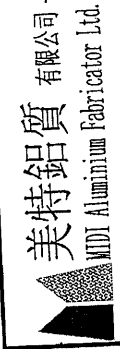 美特鋁質有限公司
MIDI Aluminium Fabricator Ltd.